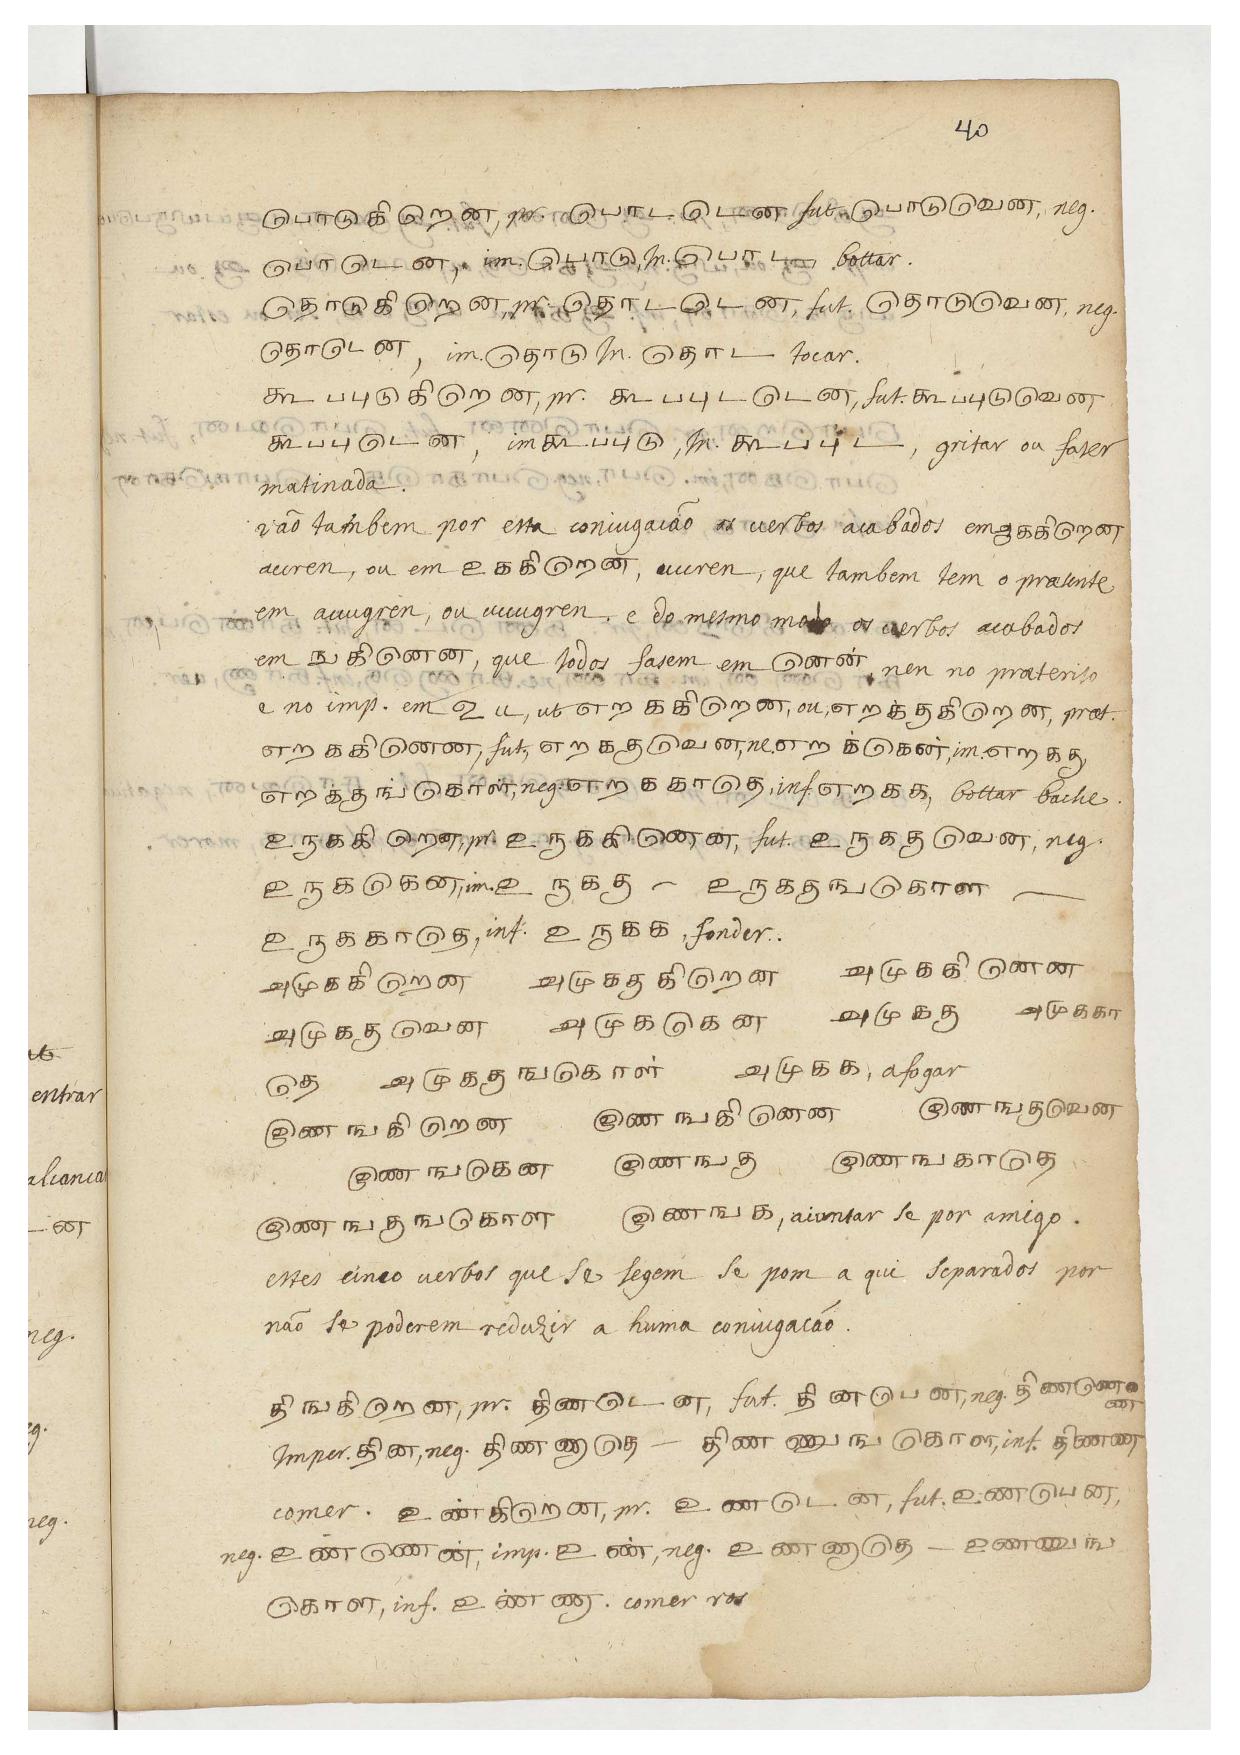 40
பொடுகிறென, pr. பொடடென fut. பொடுவென, neg.
பொடென, im. பொடு, In. பொட bottar.
தொடுகிறென, pr. தொடடென, fut. தொடுவென, neg.
தொடென, im. தொடு In. தொட tocar.
கூபபுடுகிறென, pr. கூபபுடடென, fut. கூபபுடுவென
கூபபுடென, im கூபபுடு, In. கூபபுட, gritar ou fazer
matinada.
vão tambem por esta coniugacaõ os verbos acabados em
auren, ou em உககிறென, uuren, que tambem tem o præsente
em auugren, ou uuuugren. e do mesmo modo os verbos acabados
em ஙகினென, que todos fasem em னென், nen no præterito
e no imp. em உ ut எறககிறென, ou, எறக்தகிறென, præt.
எறககினென, fut, எறகதுவென, ne. எறக்கென், im. எறகது,
எறக்தஙகொள், neg. எறககாதெ, inf. எறகக, bottar
உருககிறென, pr. உருககினென, fut. உருகதுவென, neg.
உருககென, im. உருகது – உருகதஙகொள —
உருககாதெ, inf. உருகக, fonder.
அமுககிறென அமுகதகிறென அமுககினென
அமுகதுவென அமுககென அமுகது அமுககா
தெ அமுகதஙகொள் அமுகக, afogar
இணஙகிறென இணஙகினென இணஙதுவென
இணஙகென இணஙது இணஙகாதெ
இணஙதஙகொள இணஙக, aiuntar se por amigo.
estes cinco verbos que se segem se pom a qui separados por
não se poderem reduzir a huma coniugacaõ.
திஙகிறென, pr. திணடென, fut. தினபென, neg. திணணென
Imper. தின, neg. திணணாதெ – திணணுஙகொள, inf. திணண
comer. உண்கிறென, pr. உணடென, fut. உணபென,
neg. உண்ணென், imp. உண், neg. உணணாதெ – உணணுங
கொள, inf. உண்ண. comer ros